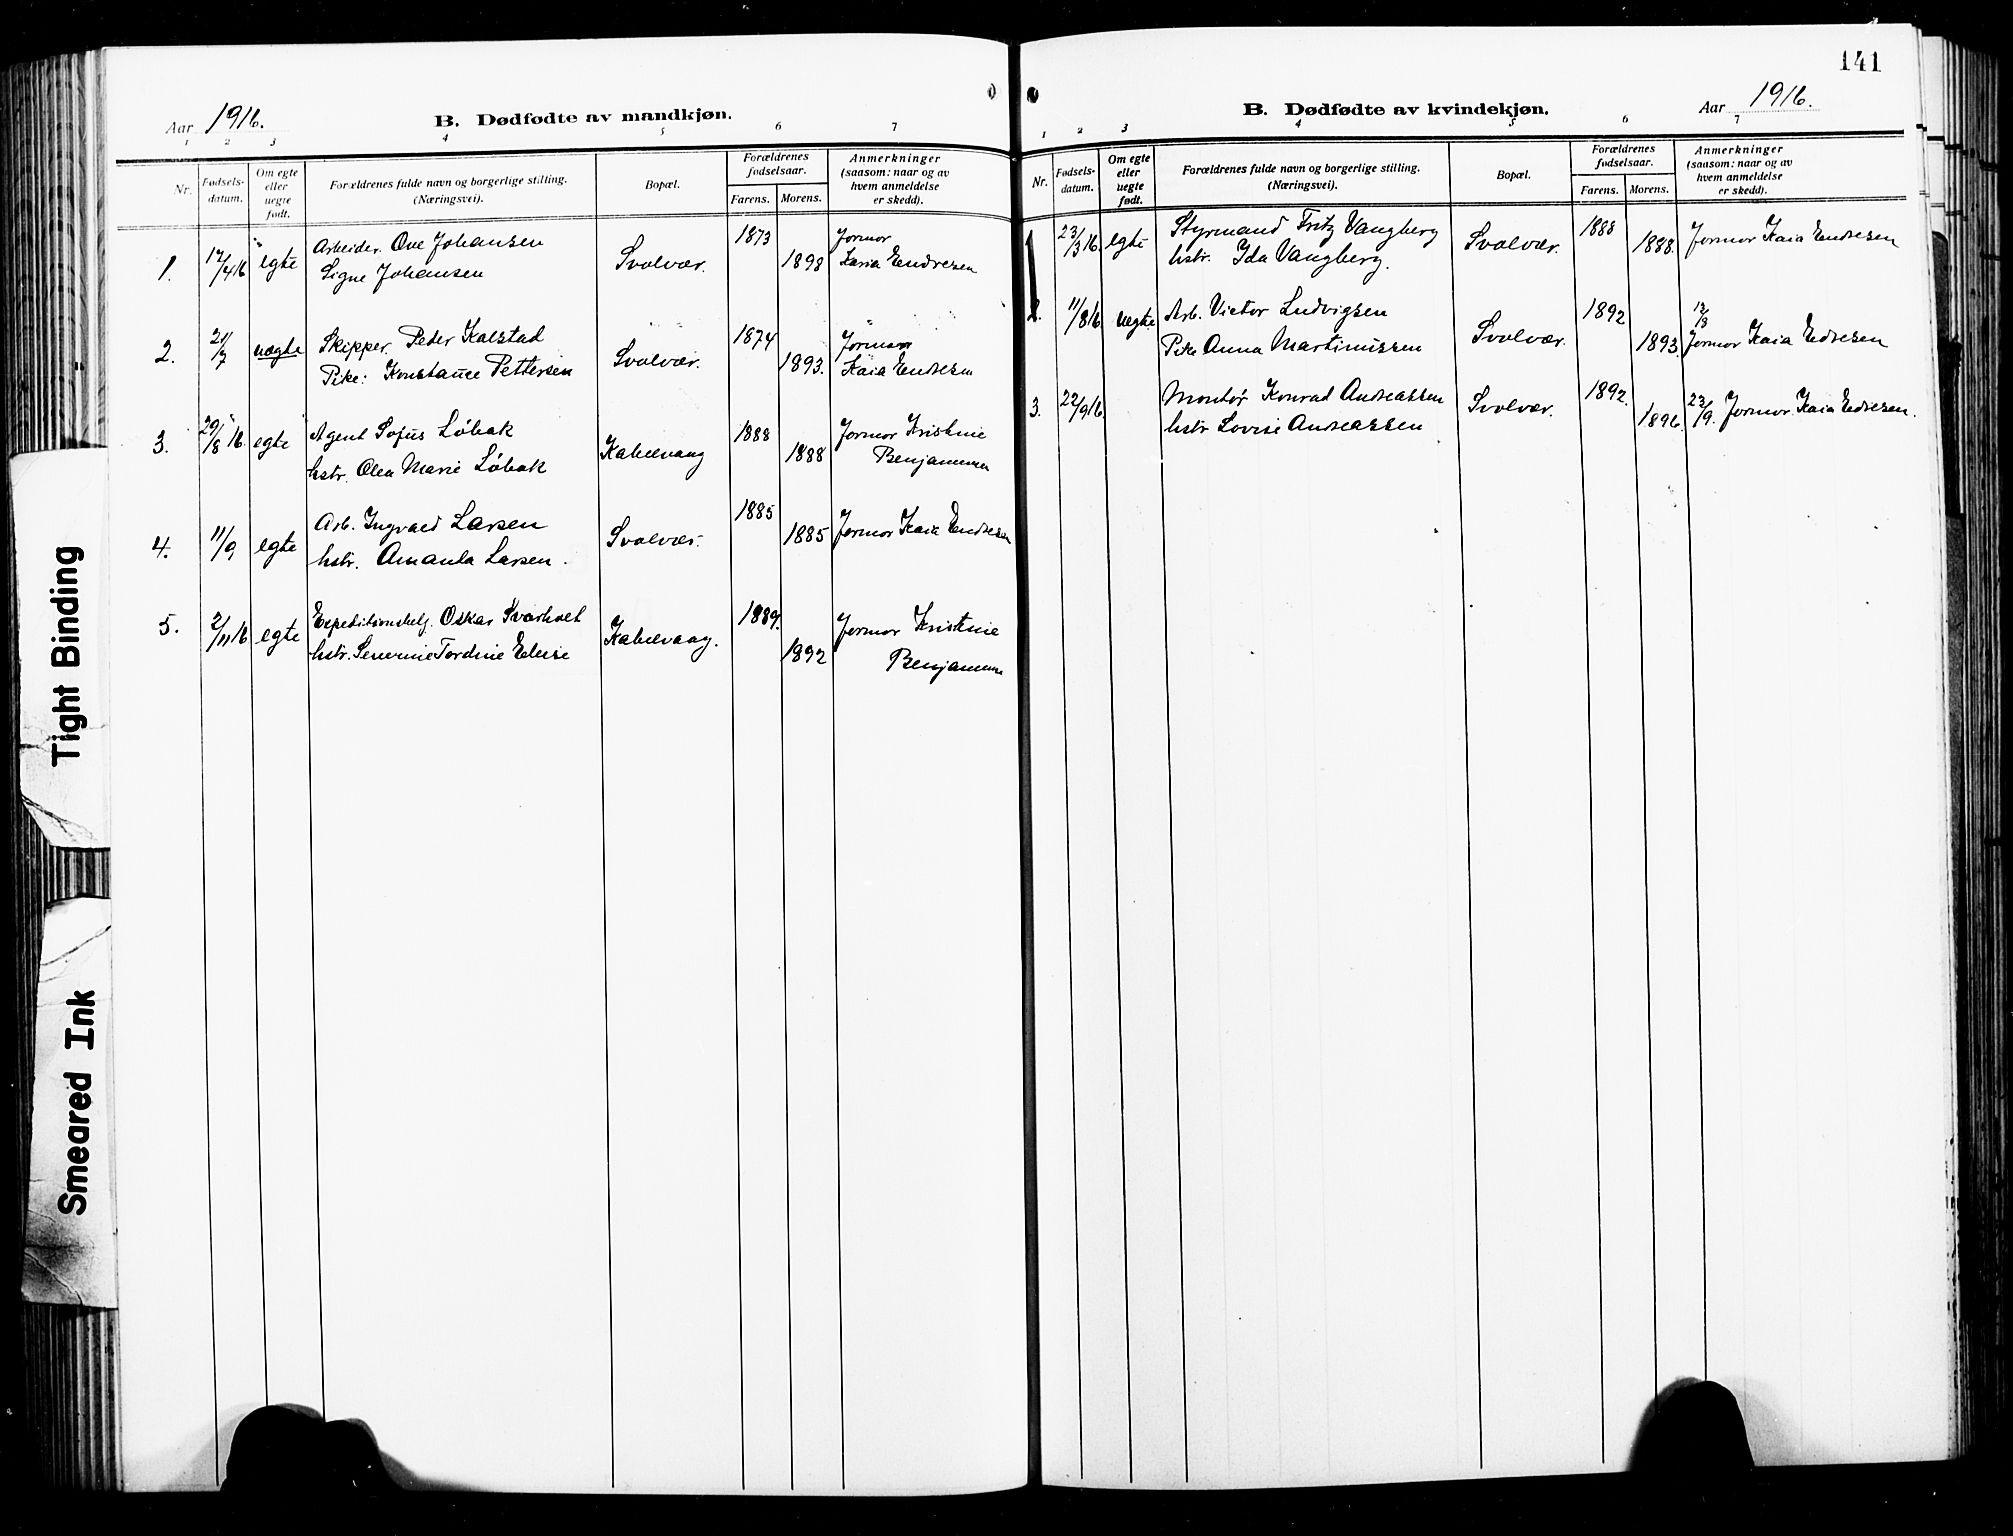 Aar 1916.
B. Dødfødte av mandkjøn.
1 2 3 4 5 6 7
Nr.
Fødsels-
datum.
Om egte
eller
uegte
født.
Forældrenes fulde navn og borgerlige stilling.
(Næringsvei).
Bopæl.
Forældrenes
fødselsaar.
Farens. Morens.
Anmerkninger
(saasom: naar og av
hvem anmeldelse
er skedd).
1. 17/4 16 egte Arbeider. Ove Johansen Svolvær. 1873 1898 Jormor
Signe Johansen Kaia Endresen
2. 21/7 uægte Skipper. Peder Kalstad Svolvær. 1874 1893. Jormor
Pike: Konstance Pettersen Kaia Endresen
3. 29/8 16 egte Agent Sofus Løbak Kabelvaag 1888 1888 Jormor Kristine
hstr. Olea Marie Løbak Benjaminsen
4. 11/9 egte Arb. Ingvald Larsen Svolvær. 1885 1885 Jormor Kaia Endresen
hstr. Amanda Larsen.
5. 2/11 16 egte Expeditionsbetj. Oskar Svarholt Kabelvaag. 1889. 1892 Jormor Kristine
hstr. Severine Tordine Elise Benjaminsen
141
B. Dødfødte av kvindekjøn.
Aar 1916.
1 2 3 4 5 6 7
Nr.
Fødsels-
datum.
Om egte
eller
uegte
født.
Forældrenes fulde navn og borgerlige stilling.
(Næringsvei).
Bopæl.
Forældrenes
fødselsaar.
Farens. Morens.
Anmerkninger
(saasom: naar og av
hvem anmeldelse
er skedd).
1 23/3 16. egte Styrmand Fritz Vangberg Svolvær. 1888 1888. Jormor Kaia Endresen
hstr. Ida Vangberg.
2. 11/8 16 uegte Arb. Victor Ludvigsen Svolvær. 1892 1893. 12/8
Pike Anna Martinussen Jormor Kaia Edresen
3. 22/9 16 Montør Konrad Andreassen Svolvær. 1892. 1896. 23/9. Jormor Kaia Edresen.
hstr Lovise Andreassen
Tight Binding
Smeared Ink